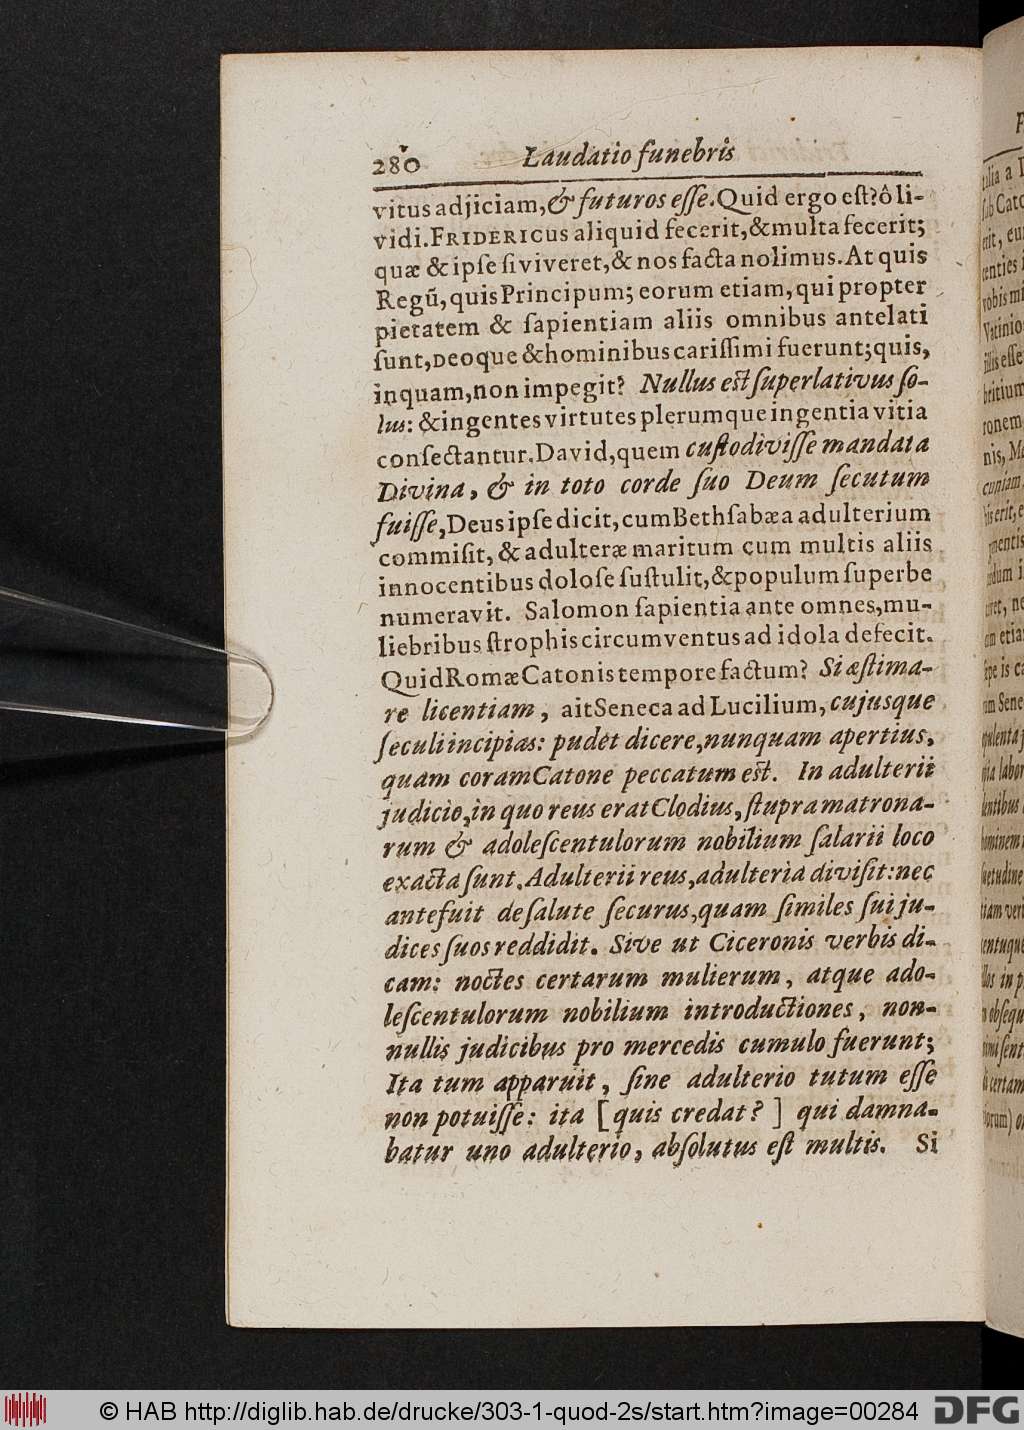 280 Laudatio funebris
vitus adjiciam, & futuros esse. Quid ergo est? ô li-
vidi. FRIDERICUS aliquid fecerit, & multa fecerit;
quæ & ipse si viveret, & nos facta nolimus. At quis
Regū, quis Principum; eorum etiam, qui propter
pietatem & sapientiam aliis omnibus antelati
sunt, DEOque & hominibus carissimi fuerunt; quis,
inquam, non impegit? Nullus est superlativus so-
lus: & ingentes virtutes plerumque ingentia vitia
consectantur. David, quem custodivisse mandata
Divina, & in toto corde suo Deum secutum
fuisse, Deus ipse dicit, cum Bethsabæa adulterium
commisit, & adulteræ maritum cum multis aliis
innocentibus dolose sustulit, & populum superbe
numeravit. Salomon sapientia ante omnes, mu-
liebribus strophis circumventus ad idola defecit.
Quid Romæ Catonis tempore factum? Si æstima-
re licentiam, ait Seneca ad Lucilium, cujusque
seculi incipias: pudet dicere, nunquam apertius,
quam coram Catone peccatum est. In adulterii
judicio, in quo reus erat Clodius, stupra matrona-
rum & adolescentulorum nobilium salarii loco
exacta sunt. Adulterii reus, adulteria divisit: nec
ante fuit de salute securus, quam similes sui ju-
dices suos reddidit. Sive ut Ciceronis verbis di-
cam: noctes certarum mulierum, atque ado-
lescentulorum nobilium introductiones, non-
nullis judicibus pro mercedis cumulo fuerunt;
Ita tum apparuit, sine adulterio tutum esse
non potuisse: ita [quis credat?] qui damna-
batur uno adulterio, absolutus est multis. Si
© HAB http://diglib.hab.de/drucke/303-1-quod-2s/start.htm?image=00284
DFG